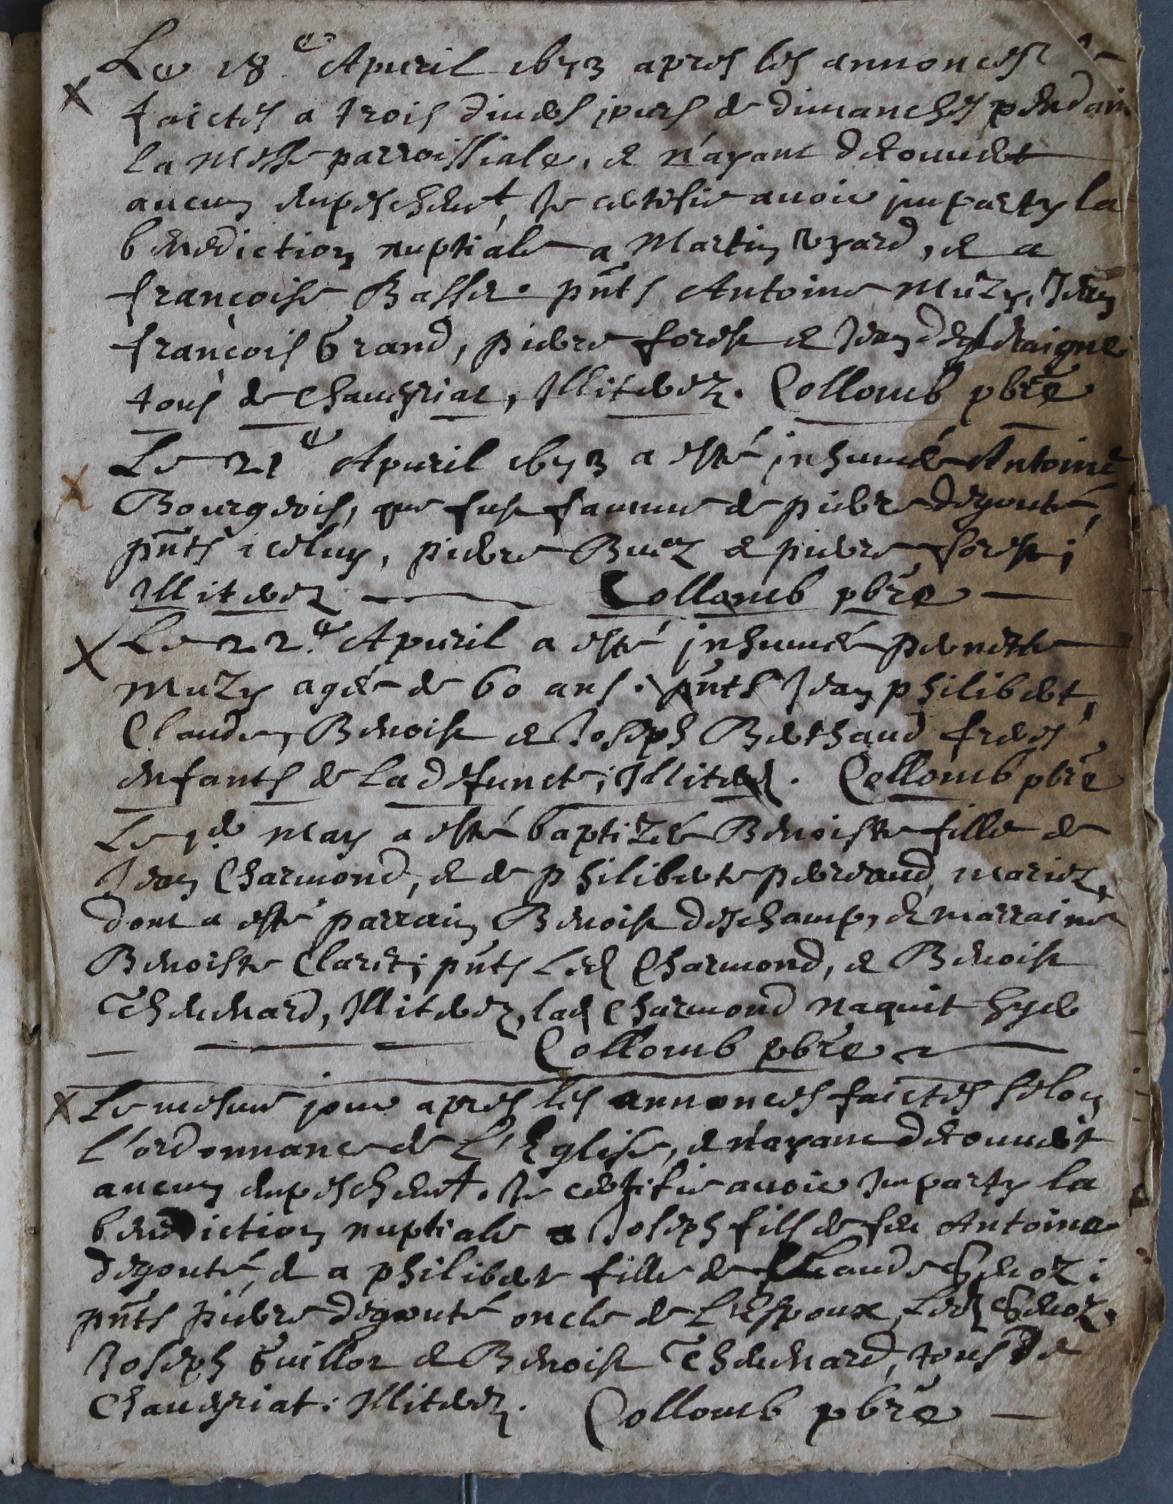 Le 18.e Apuril 1673 apres les annonces
faictes a trois diuers jours de dimanches pendant
la Messe parroissiale, et n'ayant decouuert
aucun empeschemt, Je certifie auoir jmparty la
benediction nuptiale a Martin Vyard, et a
françoise Basset pnts Antoine Muzy, Jean
françois Grand, pierre forest et Jean
tous de Chaueyriat, Illiterez. Collomb pbre
Le 21e Apuril 1673 a esté jnhumée Antoine
Bourgeois, que fust femme de pierre degouté,
pnts iceluy, pierre Buez et pierre forest;
Illiterez Collomb pbre
Le 22.e Apuril a esté jnhumée pernette
Muzy agée de 60 ans. pnts Jean philibert,
Claude, Benoist et Joseph Berthaud freres
enfants de la defuncte; Illiterez. Collomb pbre
Le 1.er May a esté baptizée Benoiste fille de
Jean Charmond, et de philiberte perreaud, mariez,
dont a esté parrain Benoist deschamps, et marraine
Benoiste Claret; pnts Led. Charmond, et Benoist
Theuenard, Illiterez, lad. Charmond naquit hyer
Collomb pbre
Le mesme jour apres les annonces faictes selon
l'ordonnance de L'Eglise, et n'ayant decouuert
aucun empeschemt. Je certifie auoir Jmparty la
benediction nuptiale a Joseph fils de feu Antoine
degouté, et a philiberte fille de Claude
pnts pierre degouté oncle de L'Espoux, Led.
Joseph Guillot et Benoist Theuenard, tous de
Chaueyriat. Illiterez. Collomb pbre